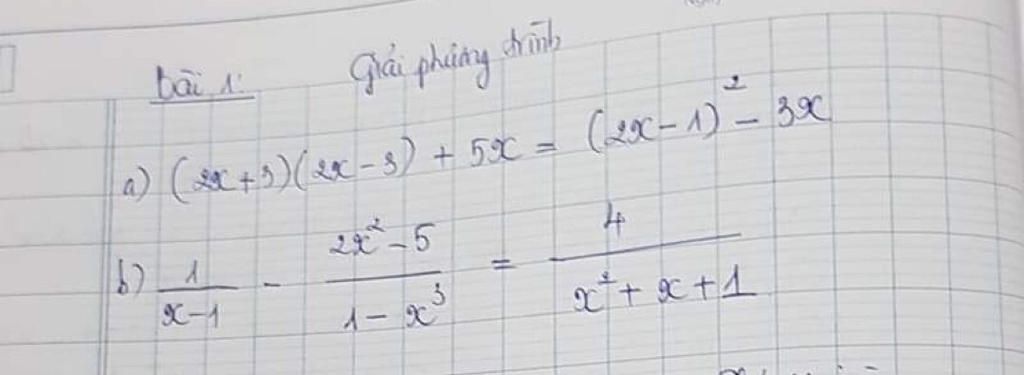 bài 1: Giải phương trình
a) (2x+3)(2x-3) + 5x = (2x-1)² - 3x
b) 1/(x-1) - (2x²-5)/(1-x³) = 4/(x²+x+1)